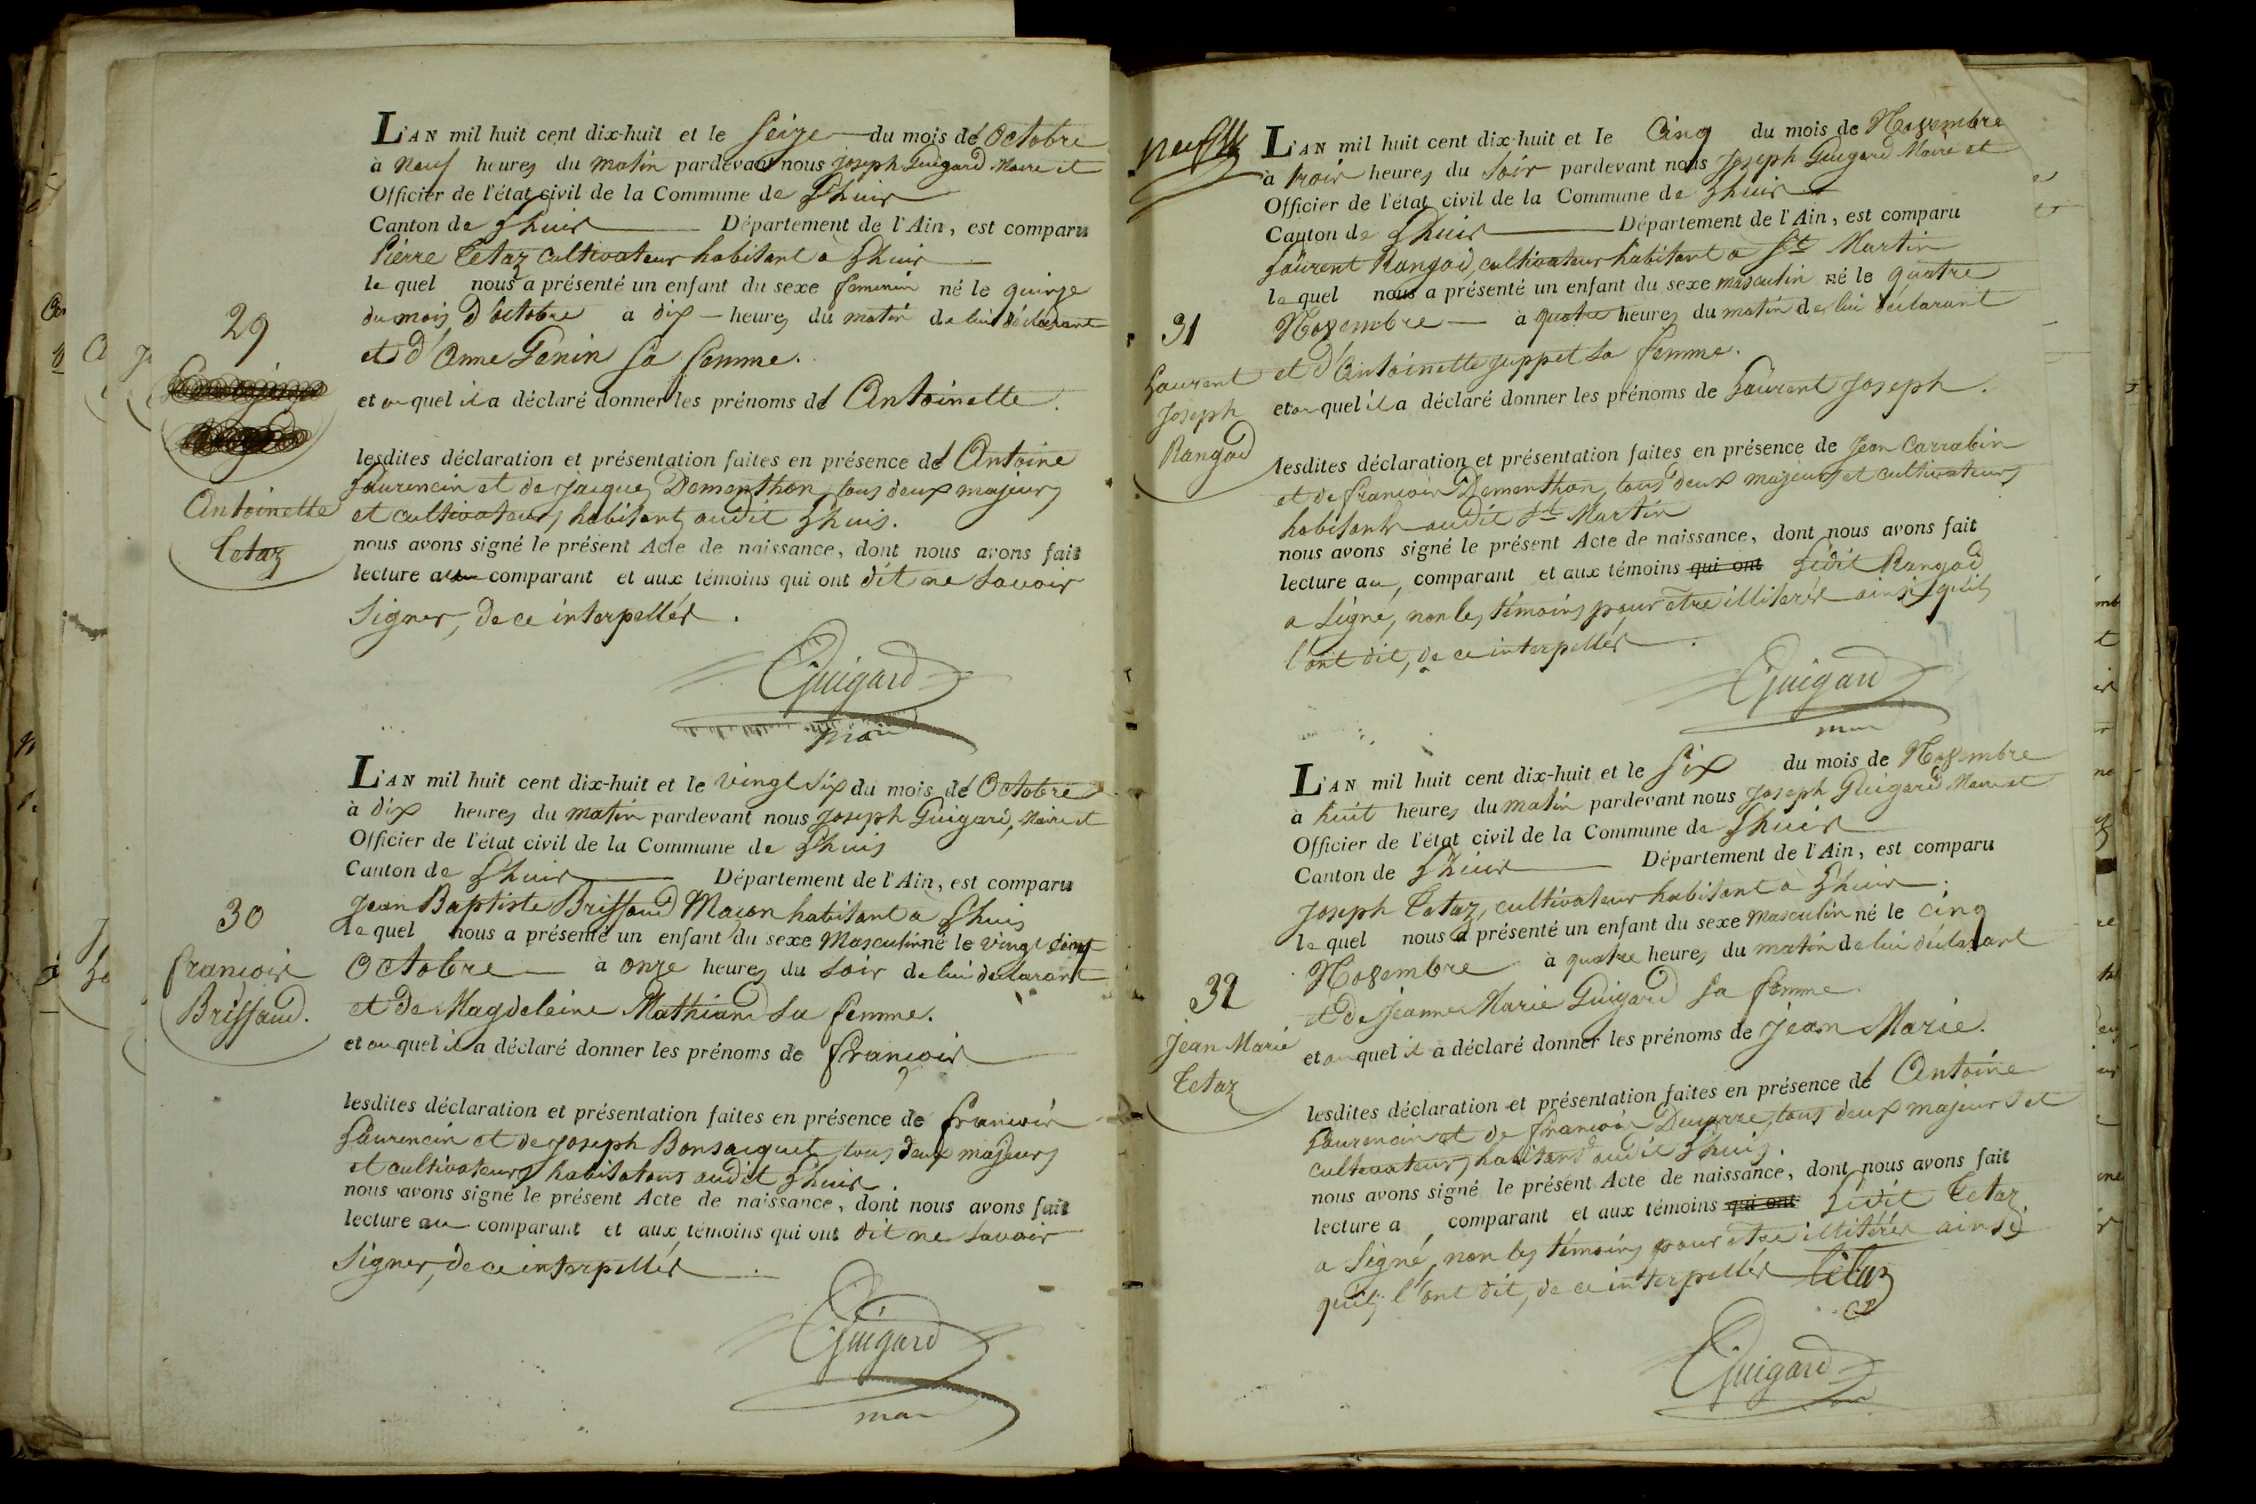 L'AN mil huit cent dix-huit et le Seize du mois de Octobre
à neuf heures du matin pardevant nous joseph Guigard Maire et
Officier de l'état civil de la Commune de Lhuis
Canton de Lhuis Département de l'Ain, est comparu
Pierre Tetaz cultivateur habitant à Lhuis
le quel nous a présenté un enfant du sexe feminin né le quinze
du mois d'octobre à dix heures du matin de lui déclarant
et d'Anne Genin sa femme.
et au quel il a déclaré donner les prénoms de Antoinette.
29
Antoinette
Tetaz
lesdites déclaration et présentation faites en présence de Antoine
Laurencin et de jacques Dementhon, tous deux majeurs
et cultivateurs habitant audit Lhuis.
nous avons signé le présent Acte de naissance, dont nous avons fait
lecture au comparant et aux témoins qui ont dit ne savoir
signer, de ce interpellés.
Guigard
maire
L'AN mil huit cent dix-huit et le vingt six du mois de Octobre
à dix heures du matin pardevant nous joseph Guigard, Maire et
Officier de l'état civil de la Commune de Lhuis
Canton de Lhuis Département de l'Ain, est comparu
jean Baptiste Brissaud Maçon habitant à Lhuis
le quel nous a présenté un enfant du sexe Masculin né le vingt cinq
Octobre à onze heures du soir de lui declarant
et de Magdeleine Mathian sa femme.
et au quel il a déclaré donner les prénoms de françois
30
françois
Brissaud.
lesdites déclaration et présentation faites en présence de françois
Laurencin et de joseph Bonsacquet, tous deux majeurs
et cultivateurs habitatans audit Lhuis.
nous avons signé le présent Acte de naissance, dont nous avons fait
lecture au comparant et aux témoins qui ont dit ne savoir
signer, de ce interpellés.
Guigard
maire
L'AN mil huit cent dix-huit et le Cinq du mois de Novembre
à trois heures du soir pardevant nous joseph Guigard Maire et
Officier de l'état civil de la Commune de Lhuis
Canton de Lhuis Département de l'Ain, est comparu
Laurent Rangod, cultivateur habitant à St Martin
le quel nous a présenté un enfant du sexe masculin né le quatre
Novembre à quatre heures du matin de lui déclarant
et d'Antoinette juppet sa femme.
et au quel il a déclaré donner les prénoms de Laurent joseph.
31
Laurent
joseph
Rangod
lesdites déclaration et présentation faites en présence de jean Carrabin
et de francois Dementhon, tous deux majeurs et cultivateurs
habitants audit St Martin
nous avons signé le présent Acte de naissance, dont nous avons fait
lecture au, comparant et aux témoins qui ont Ledit Rangod
a signé, non les témoins pour être illitérés ainsi qu'ils
l'ont dit, de ce interpellés.
Guigard
maire
L'AN mil huit cent dix-huit et le Six du mois de Novembre
à huit heures du matin pardevant nous joseph Guigard Maire et
Officier de l'état civil de la Commune de Lhuis
Canton de Lhuis Département de l'Ain, est comparu
joseph Tetaz, cultivateur habitant à Lhuis.
le quel nous a présenté un enfant du sexe Masculin né le cinq
Novembre à quatre heures du matin de lui déclarant
et de jeanne Marie Guigard sa femme.
et au quel il a déclaré donner les prénoms de jean Marie.
32
jean Marie
Tetaz
lesdites déclaration et présentation faites en présence de Antoine
Laurencin et de françois Ducarre, tous deux majeurs et
cultivateurs, habitans audit Lhuis.
nous avons signé le présent Acte de naissance, dont nous avons fait
lecture a, comparant et aux témoins qui ont Ledit Tetaz
a signé, non les témoins pour être illitérés ainsi
quils l'ont dit, de ce interpellés Tetaz
Guigard